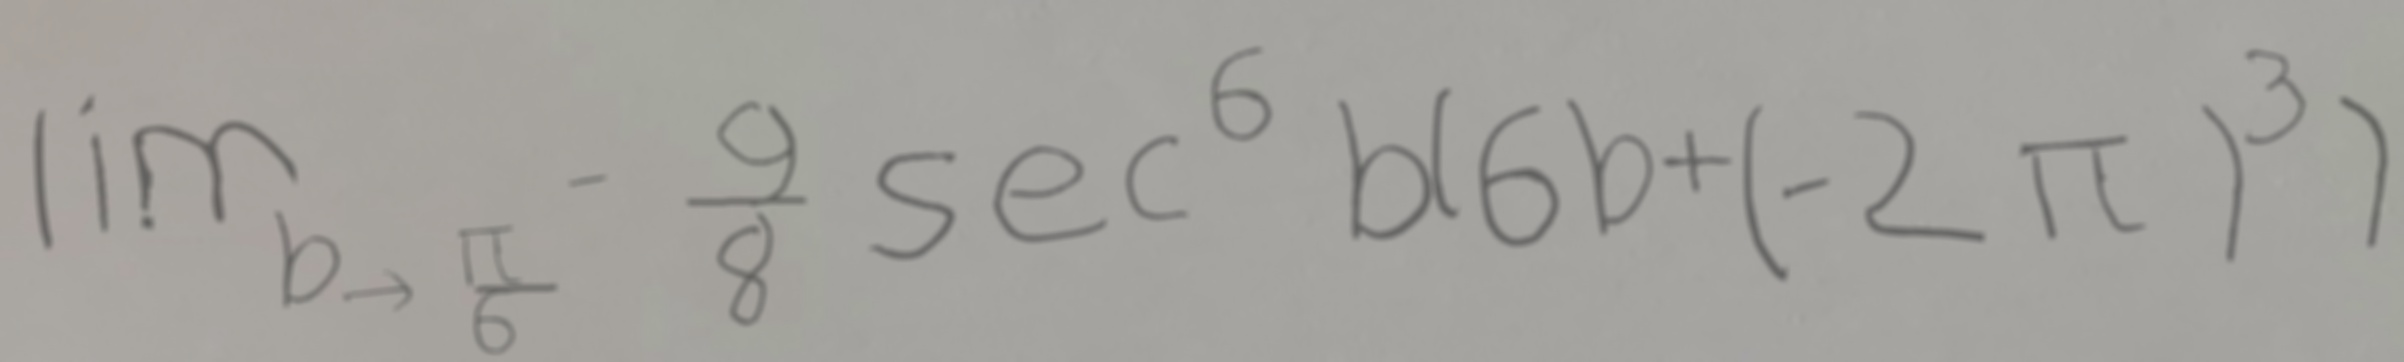 \lim_{b \to \frac{\pi}{6}} -\frac{9}{8} \sec^6 b(6b+(-2\pi)^3)